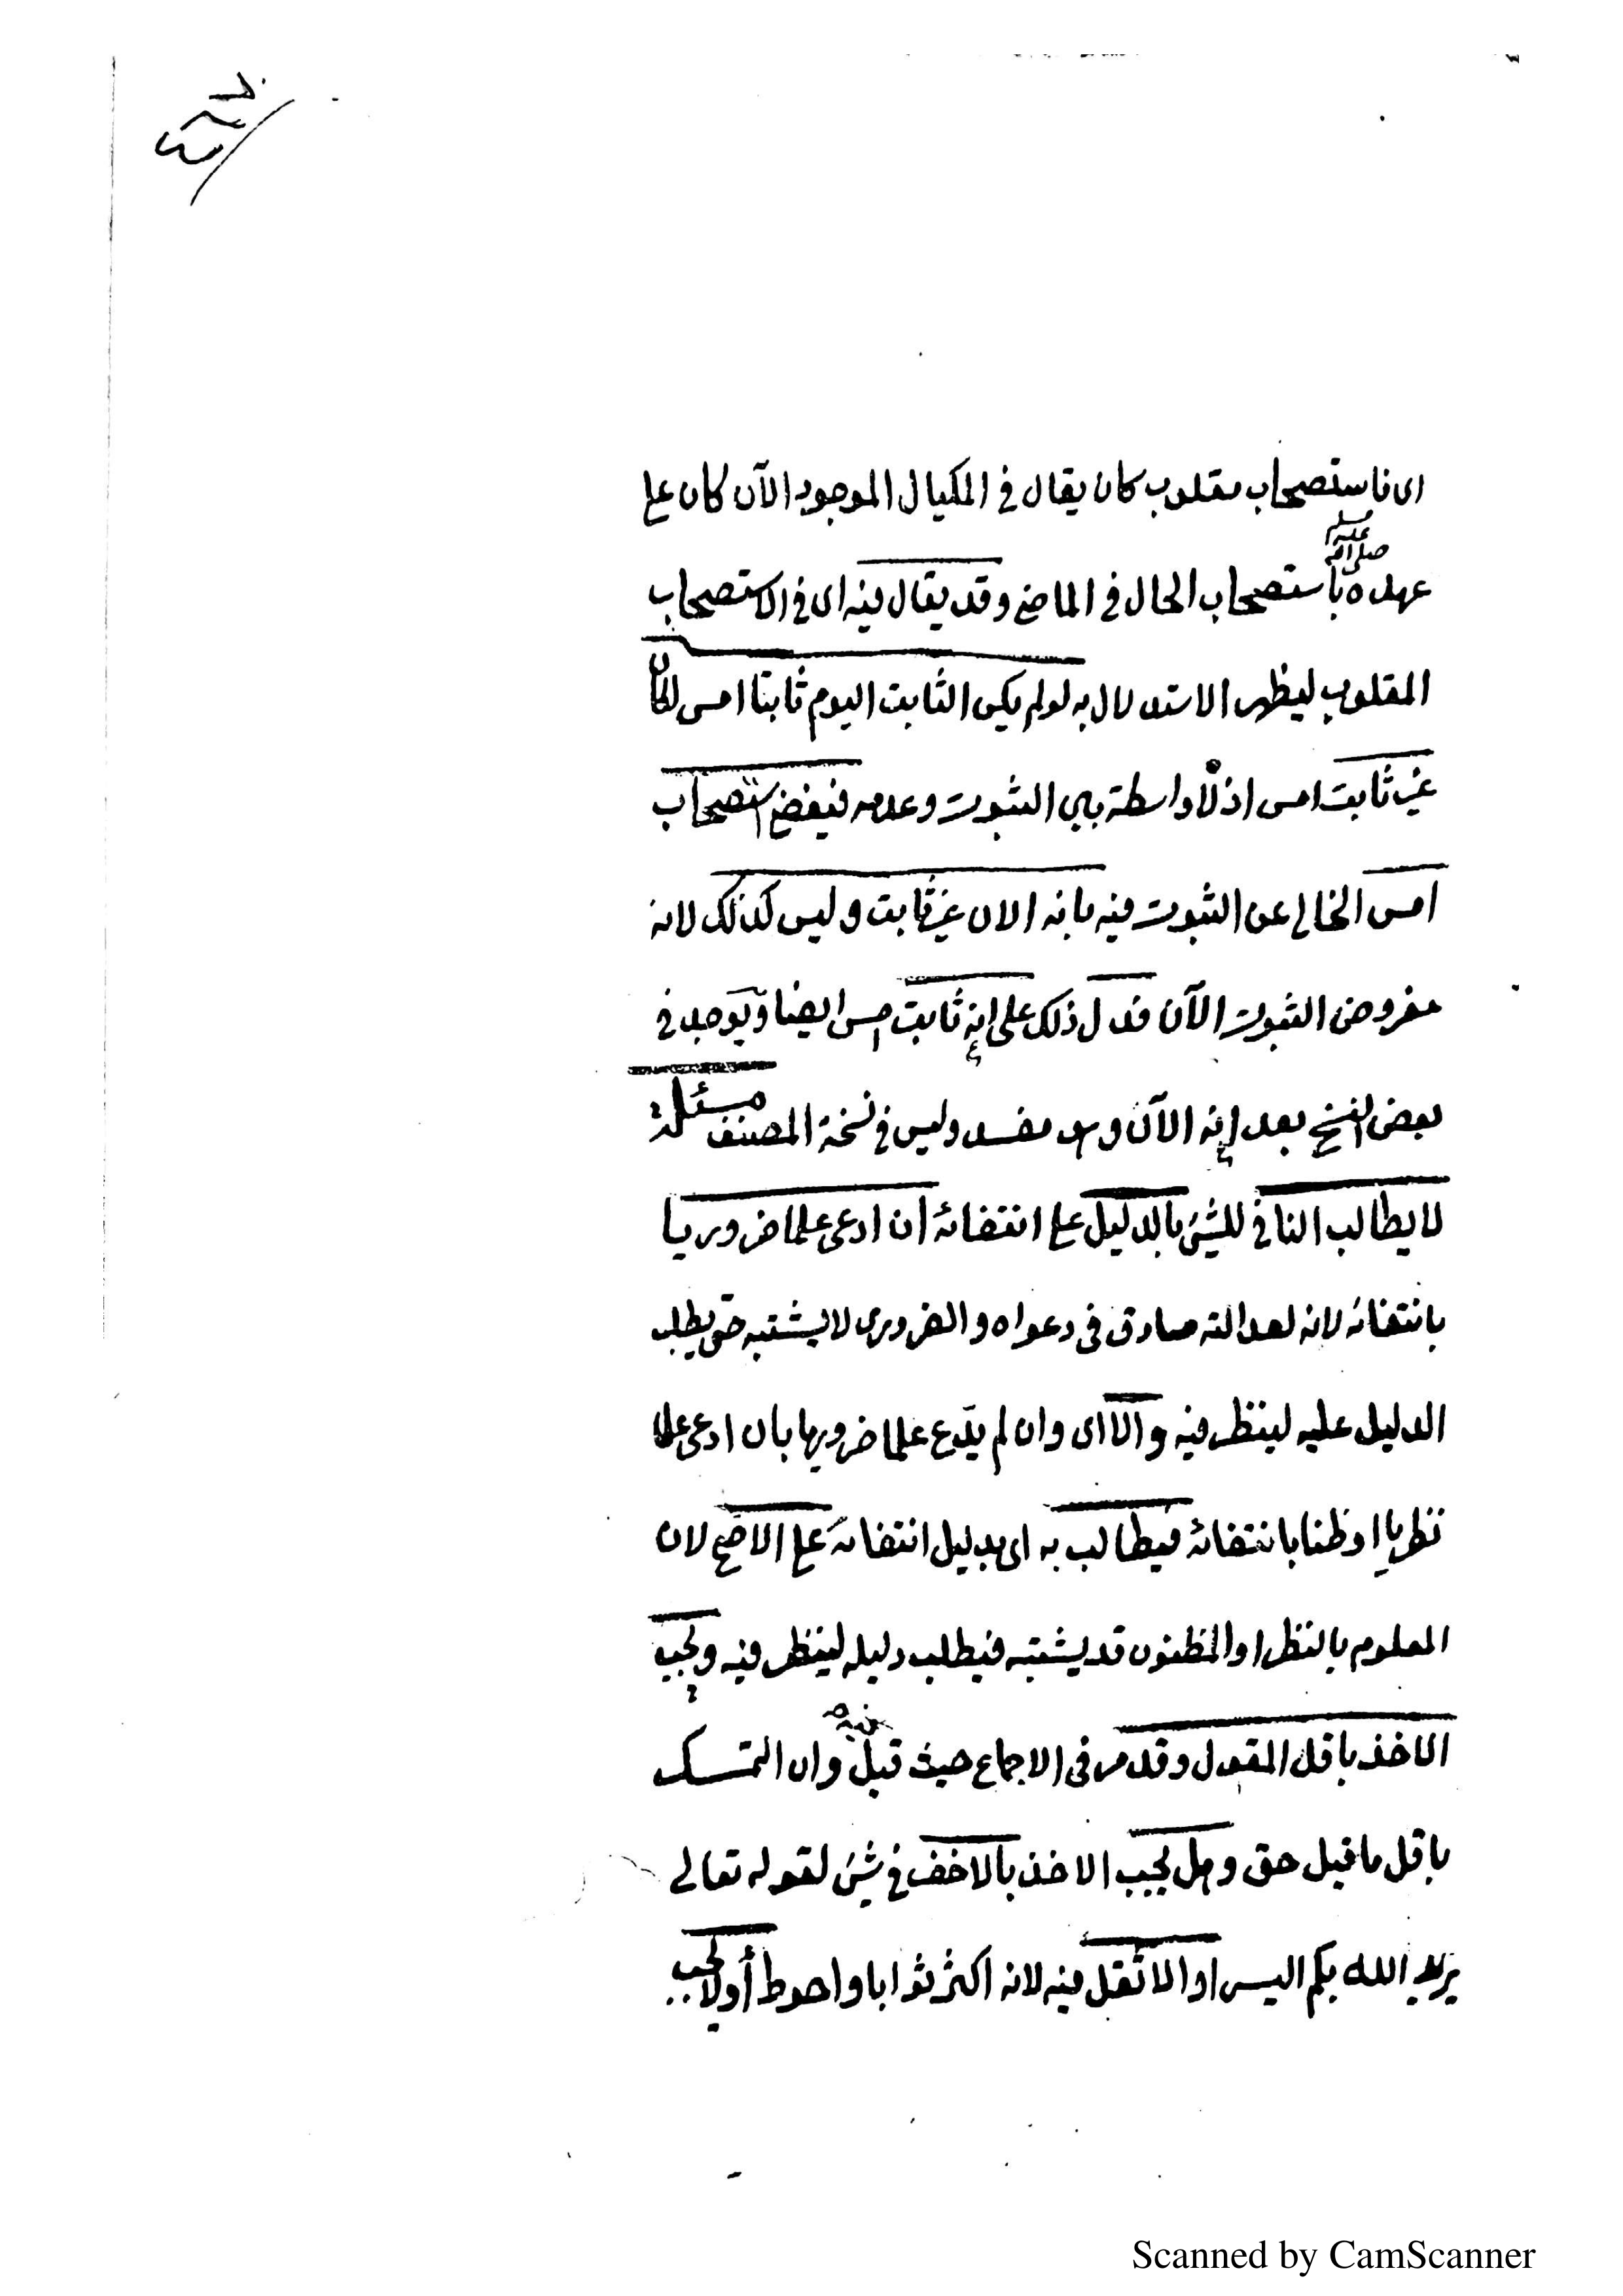 اى فاستصحاب مقلوب كان يقال فى المكيال الموجود الآن كان على
عهده صلى الله عليه وسلم باستصحاب الحال فى الماضى وقد يقال فيه اى فى الاستصحاب
المقلوب ليظهر الاستدلال به لو لم يكن الثابت اليوم ثابتا امس لكان
غير ثابت امس اذ لا واسطة بين الثبوت وعدمه فيقضى استصحاب
امس الخالى عن الثبوت فيه بانه الان غير ثابت وليس كذلك لانه
مفروض الثبوت الآن فدل ذلك على انه ثابت امس ايضا ويوجد فى
بعض النسخ بعد انه الآن وهو مفسد وليس فى نسخة المصنف مسئلة
لا يطالب النافى للشئ بالدليل على انتفائه ان ادعى علما ضروريا
بانتفائه لانه لعدالته صادق فى دعواه والضرورى لا يشتبه حتى يطلب
الدليل عليه لينظر فيه والا اى وان لم يدّع علما ضروريا بان ادعى علما
نظريا او ظنا بانتفائه فيطالب به اى بدليل انتفائه على الاصح لان
المعلوم بالنظر او المظنون قد يشتبه فيطلب دليله لينظر فيه ويجب
الاخذ باقل المقول وقد مر فى الاجماع حيث قيل فيه وان التمسك
باقل ما قيل حق وهل يجب الاخذ بالاخف فى شئ لقوله تعالى
يريد الله بكم اليسر او الاثقل فيه لانه اكثر ثوابا واحوط أو لا يجب
Scanned by CamScanner